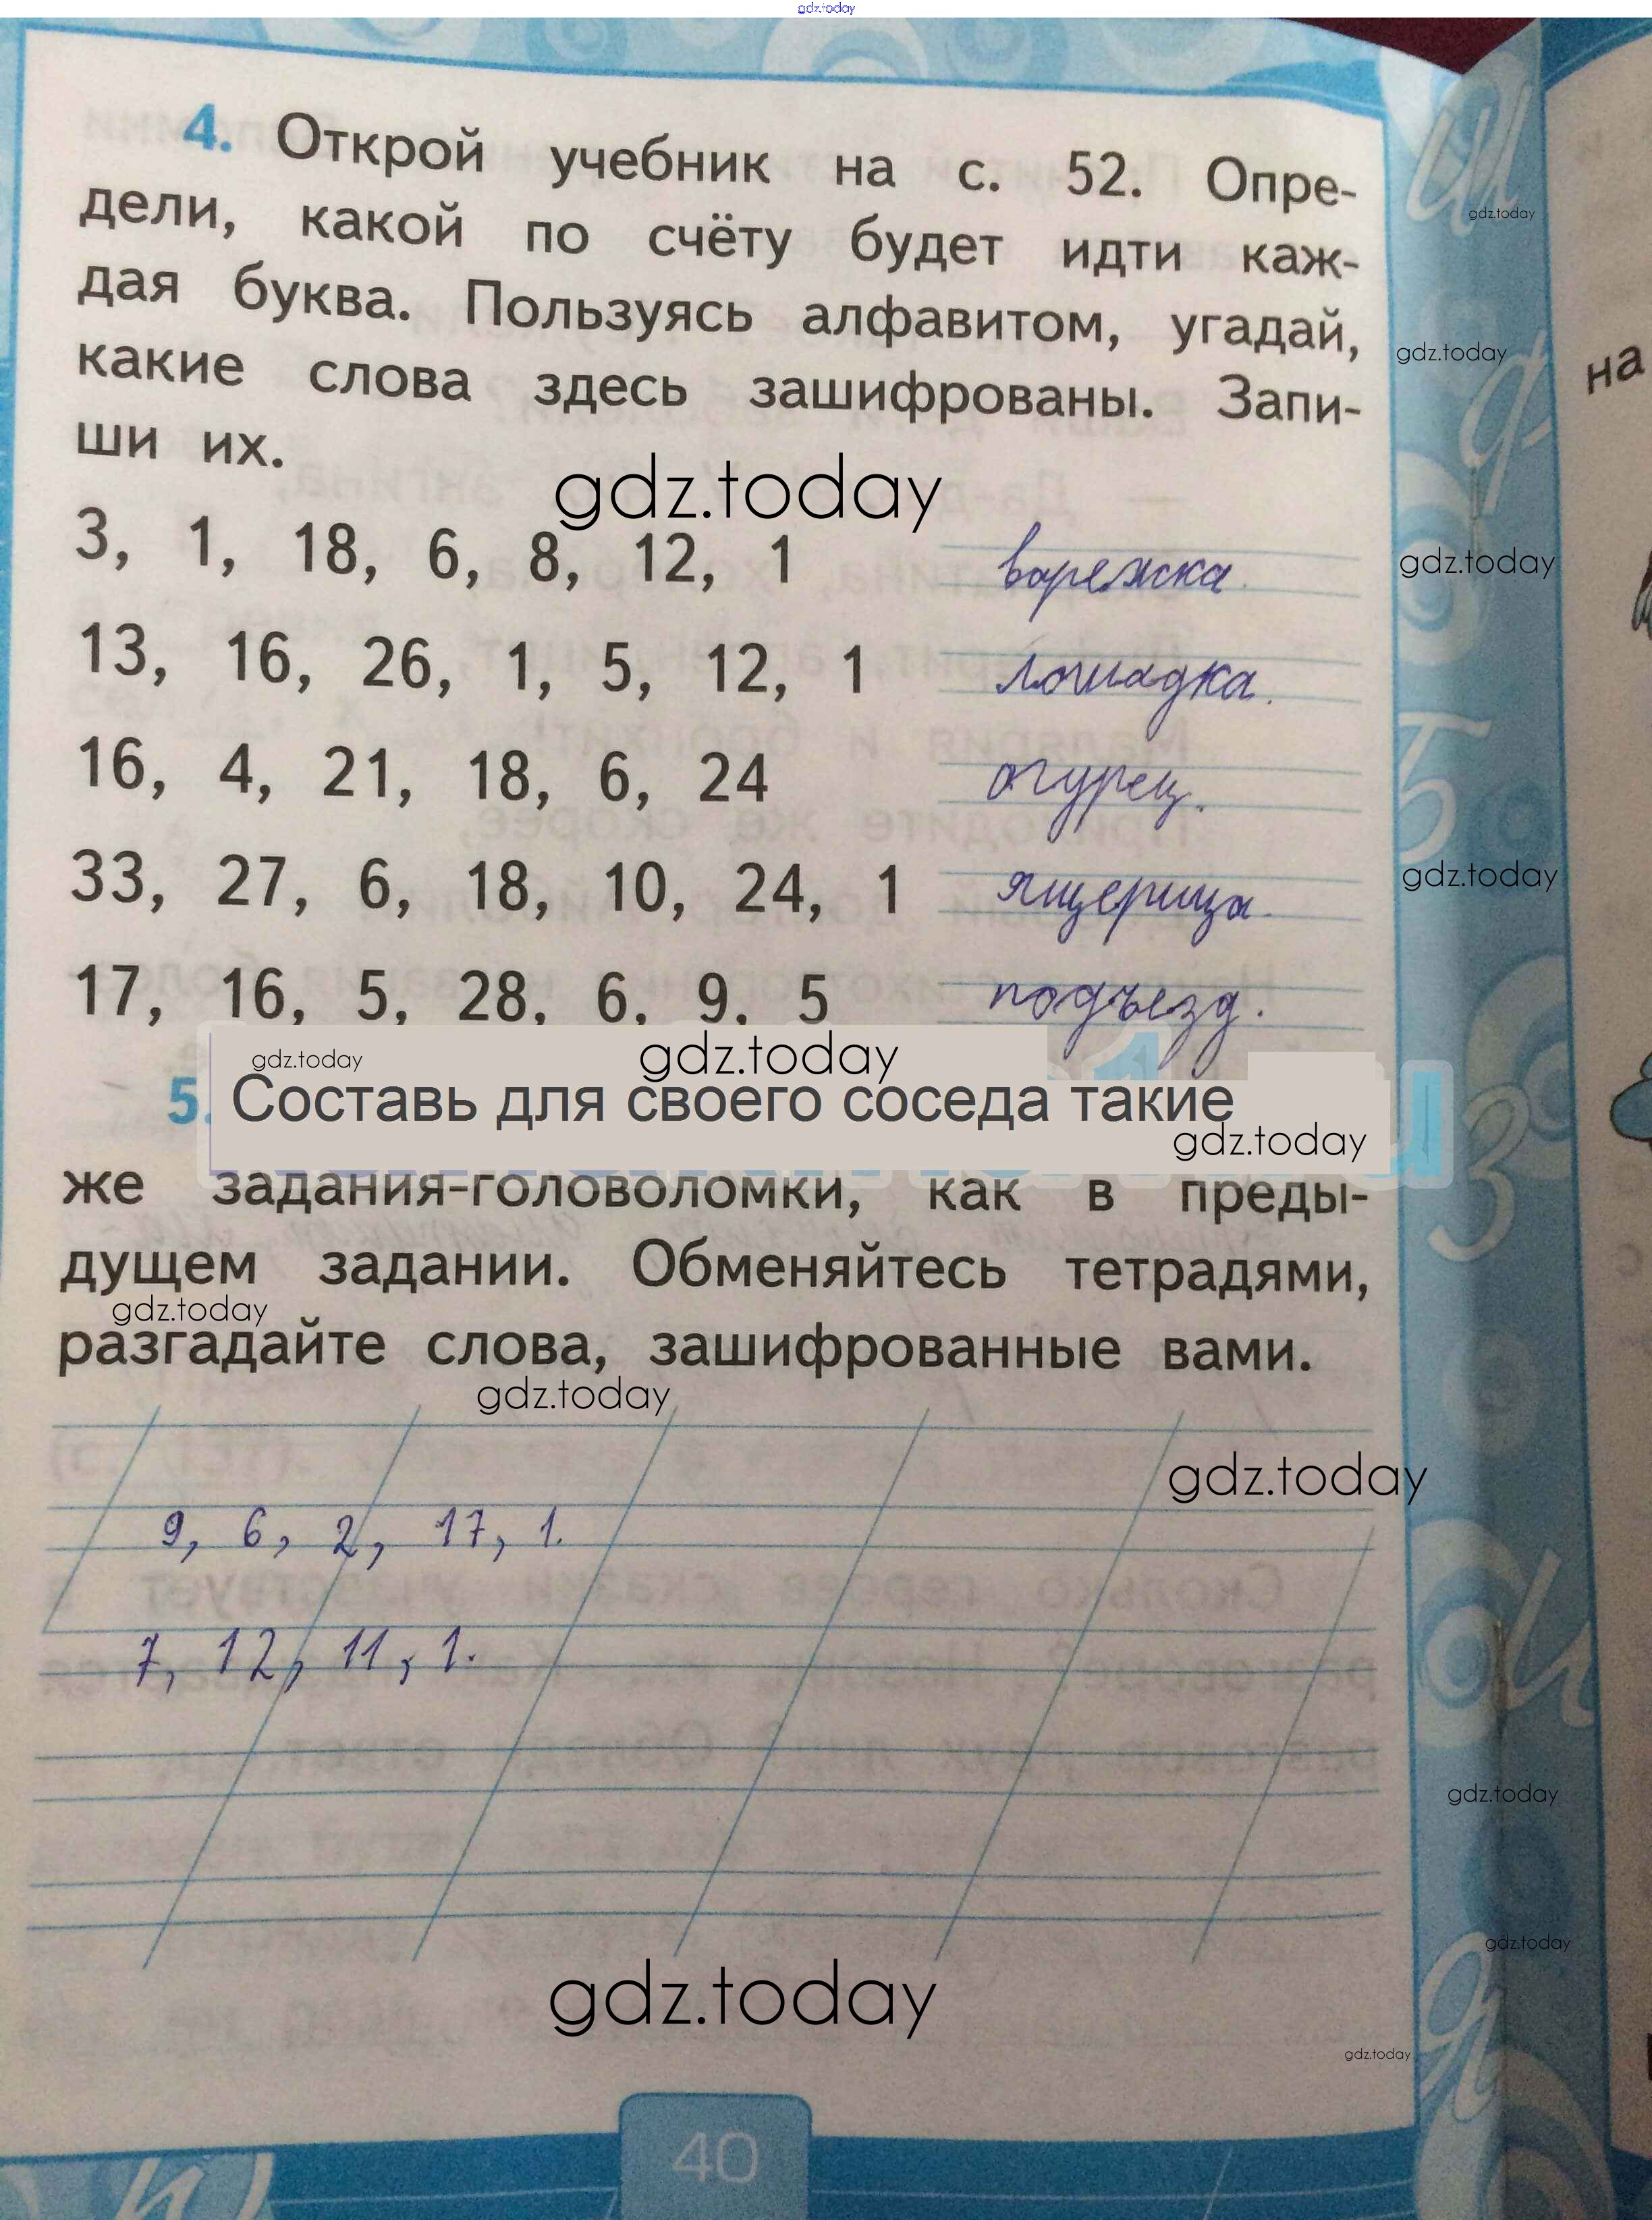 gdz.today
4. Открой учебник на с. 52. Опре-
gdz.today
дели, какой по счёту будет идти каж-
дая буква. Пользуясь алфавитом, угадай,
gdz.today
на
какие слова здесь зашифрованы. Запи-
ши их.
gdz.today
3, 1, 18, 6, 8, 12, 1 варежка.
gdz.today
13, 16, 26, 1, 5, 12, 1 лошадка.
16, 4, 21, 18, 6, 24 огурец.
33, 27, 6, 18, 10, 24, 1 ящерица.
gdz.today
17, 16, 5, 28, 6, 9, 5 подъезд.
gdz.today
gdz.today
5. Составь для своего соседа такие
gdz.today
же задания-головоломки, как в преды-
дущем задании. Обменяйтесь тетрадями,
gdz.today
разгадайте слова, зашифрованные вами.
gdz.today
gdz.today
9, 6, 2, 17, 1.
7, 12, 11, 1.
gdz.today
gdz.today
gdz.today
gdz.today
40